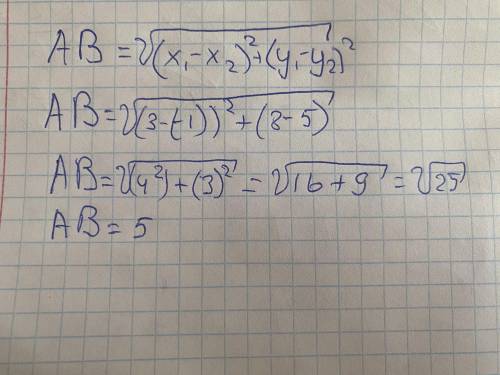 AB = √(x₁-x₂)²+(y₁-y₂)²
AB = √(3-(-1))²+(8-5)
AB = √(4²)+(3)² = √16+9 = √25
AB = 5